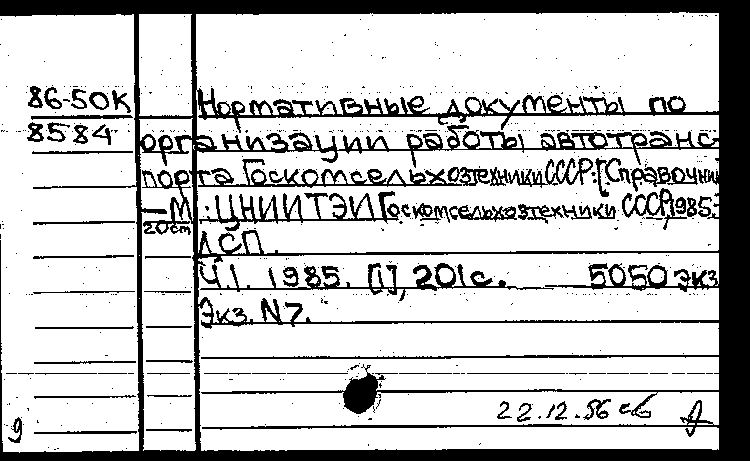 86-50К Нормативные документы по
8584 организации работы автотранс-
порта Госкомсельхозтехники СССР: [Справочник
-М.: ЦНИИТЭИ Госкомсельхозтехники СССР, 1985.-
20см
ДСП.
Ч.1. 1985. [1], 201с. 5050 экз
Экз. N7.
22.12.86
9